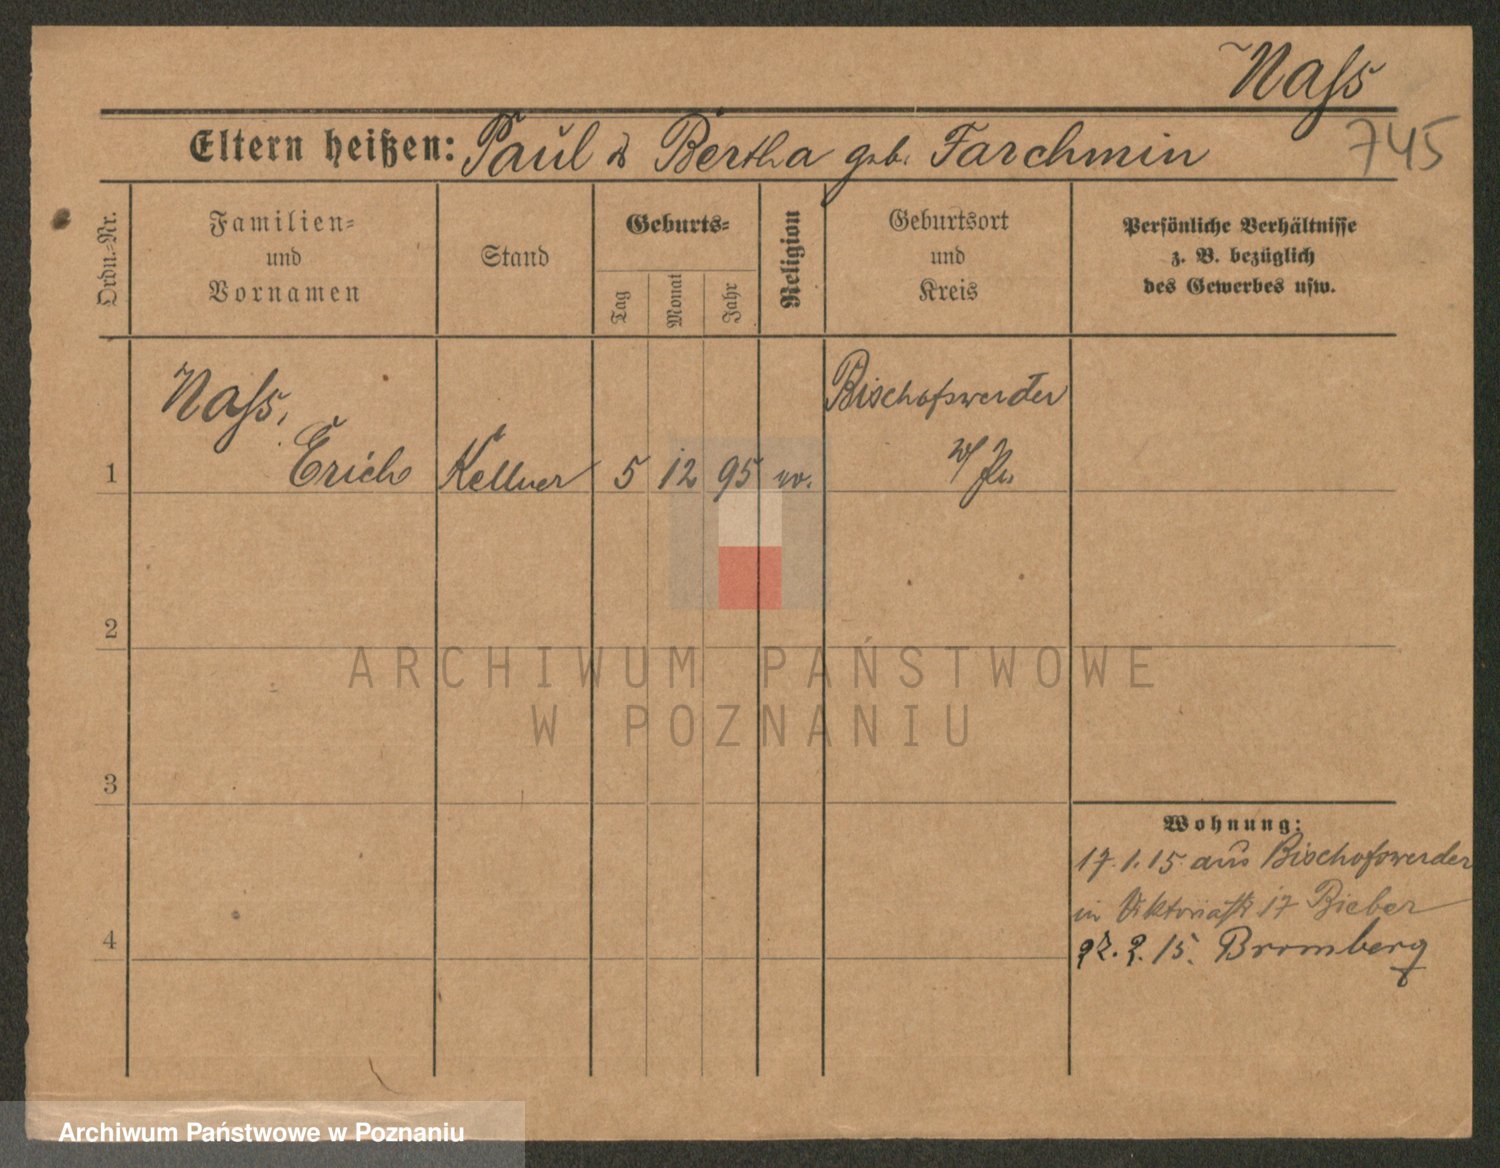 Nass
745
Eltern heißen: Paul & Bertha geb. Farchmin
Ordn.-Nr.
Familien- und Vornamen
Stand
Geburts-
Tag
Monat
Jahr
Religion
Geburtsort und Kreis
Persönliche Verhältnisse
z. B. bezüglich
des Gewerbes usw.
1
Nass,
Erich
Kellner
5
12
95
Bischofswerder
W/Pr.
2
3
4
Wohnung:
17.1.15 aus Bischofswerder
in Viktoriastr 17 Bieber
22.2.15. Bromberg
ARCHIWUM PAŃSTWOWE
W POZNANIU
Archiwum Państwowe w Poznaniu